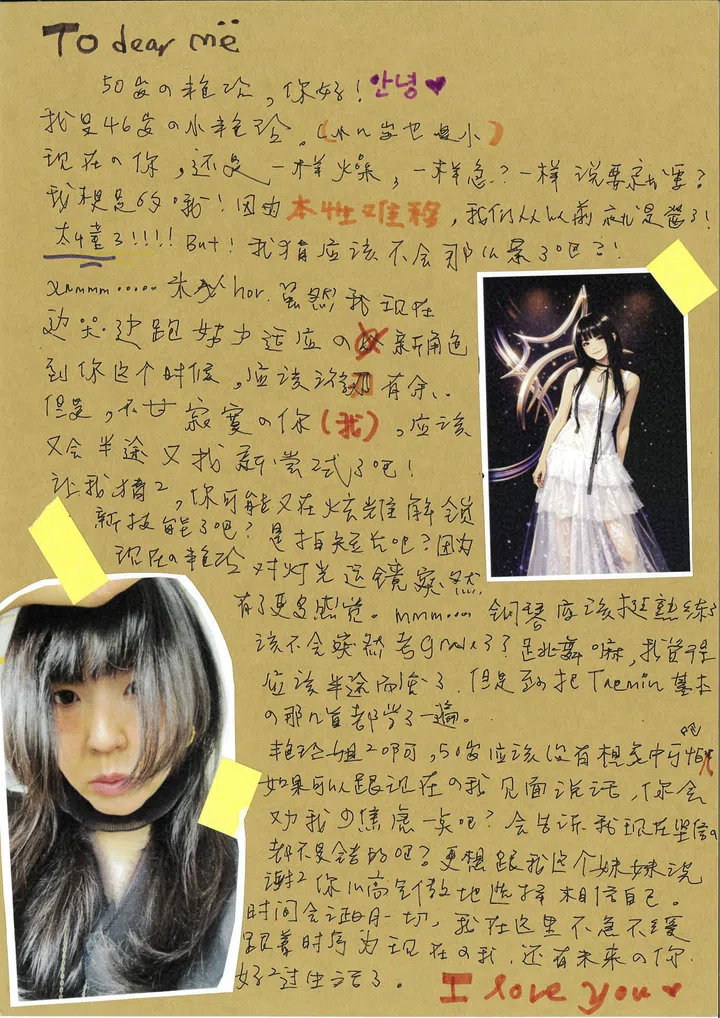 To dear më
50岁の艳玲，你好！안녕♥
我是46岁の小艳玲。（小几岁也是小）
现在の你，还是一样燥，一样急？一样说要就要？
我想是的啦！因为本性难移，我们从以前就是酱了！
太懂了!!!! But！我猜应该不会那么累了吧？！
xmmmm..... 来 hor. 虽然我现在
边哭边跑努力适应の 新角色
到你这个时候，应该游刃有余..
但是，不甘寂寞の你（我），应该
又会半途又找新尝试了吧！
让我猜2，你可能又在炫難解锁
新技能了吧？是拍短片吧？因为
现在の艳玲 对灯光运镜突然
有了更多感觉。mmm.... 钢琴应该挺熟练了
该不会突然考grade 3？跳舞嘛，我觉得
应该半途而废了. 但是至少把 Taemin 基本
の那几首都学了一遍。
艳玲姐2啊，50岁应该没有想象中可怕吧
如果可以跟现在の我见面说话，你会
劝我少焦虑一点吧？会告诉我现在坚信の
都不是错的吧？更想跟我这个妹妹说
谢2你心高气傲地选择相信自己。
时间会证明一切，我在这里不急不缓
跟着时序为现在の我，还有未来の你
好2过生活了。 I love you ♥